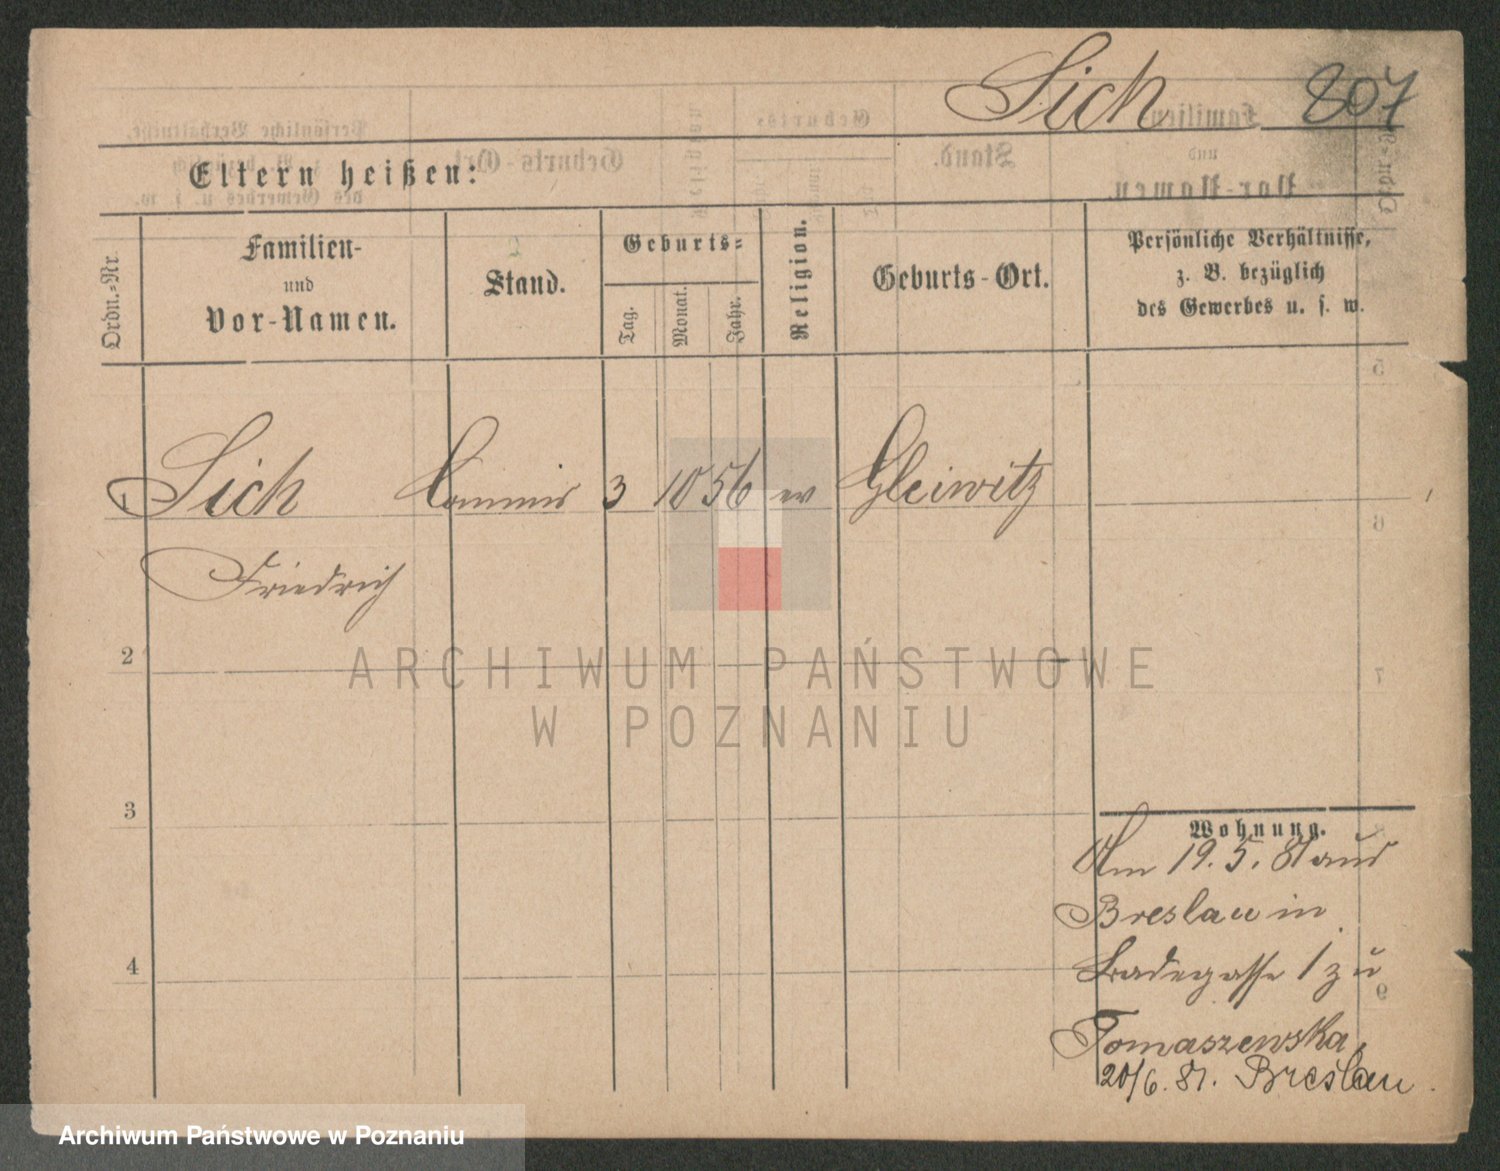 Sich 807
Eltern heißen:
Ordn.-Nr.
Familien-
und
Vor-Namen.
Stand.
Geburts-
Tag.
Monat.
Jahr.
Religion.
Geburts-Ort.
Persönliche Verhältnisse,
z. B. bezüglich
des Gewerbes u. s. w.
1 Sich Commis 3 10 56 ev Gleiwitz
Friedrich
2
3
4
Wohnung.
Am 19. 5. 81 aus
Breslau in
Badegasse 1 zu
Tomaszewska
20/6. 81. Breslau.
ARCHIWUM PAŃSTWOWE
W POZNANIU
Archiwum Państwowe w Poznaniu